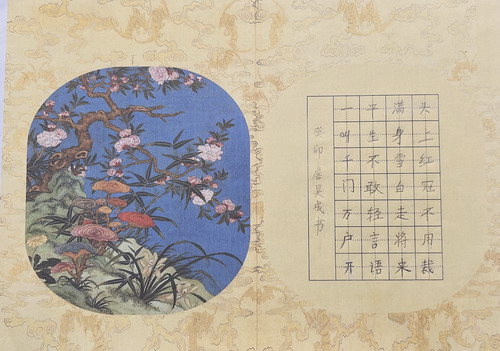 头上红冠不用裁
满身雪白走将来
平生不敢轻言语
一叫千门万户开
癸卯 书